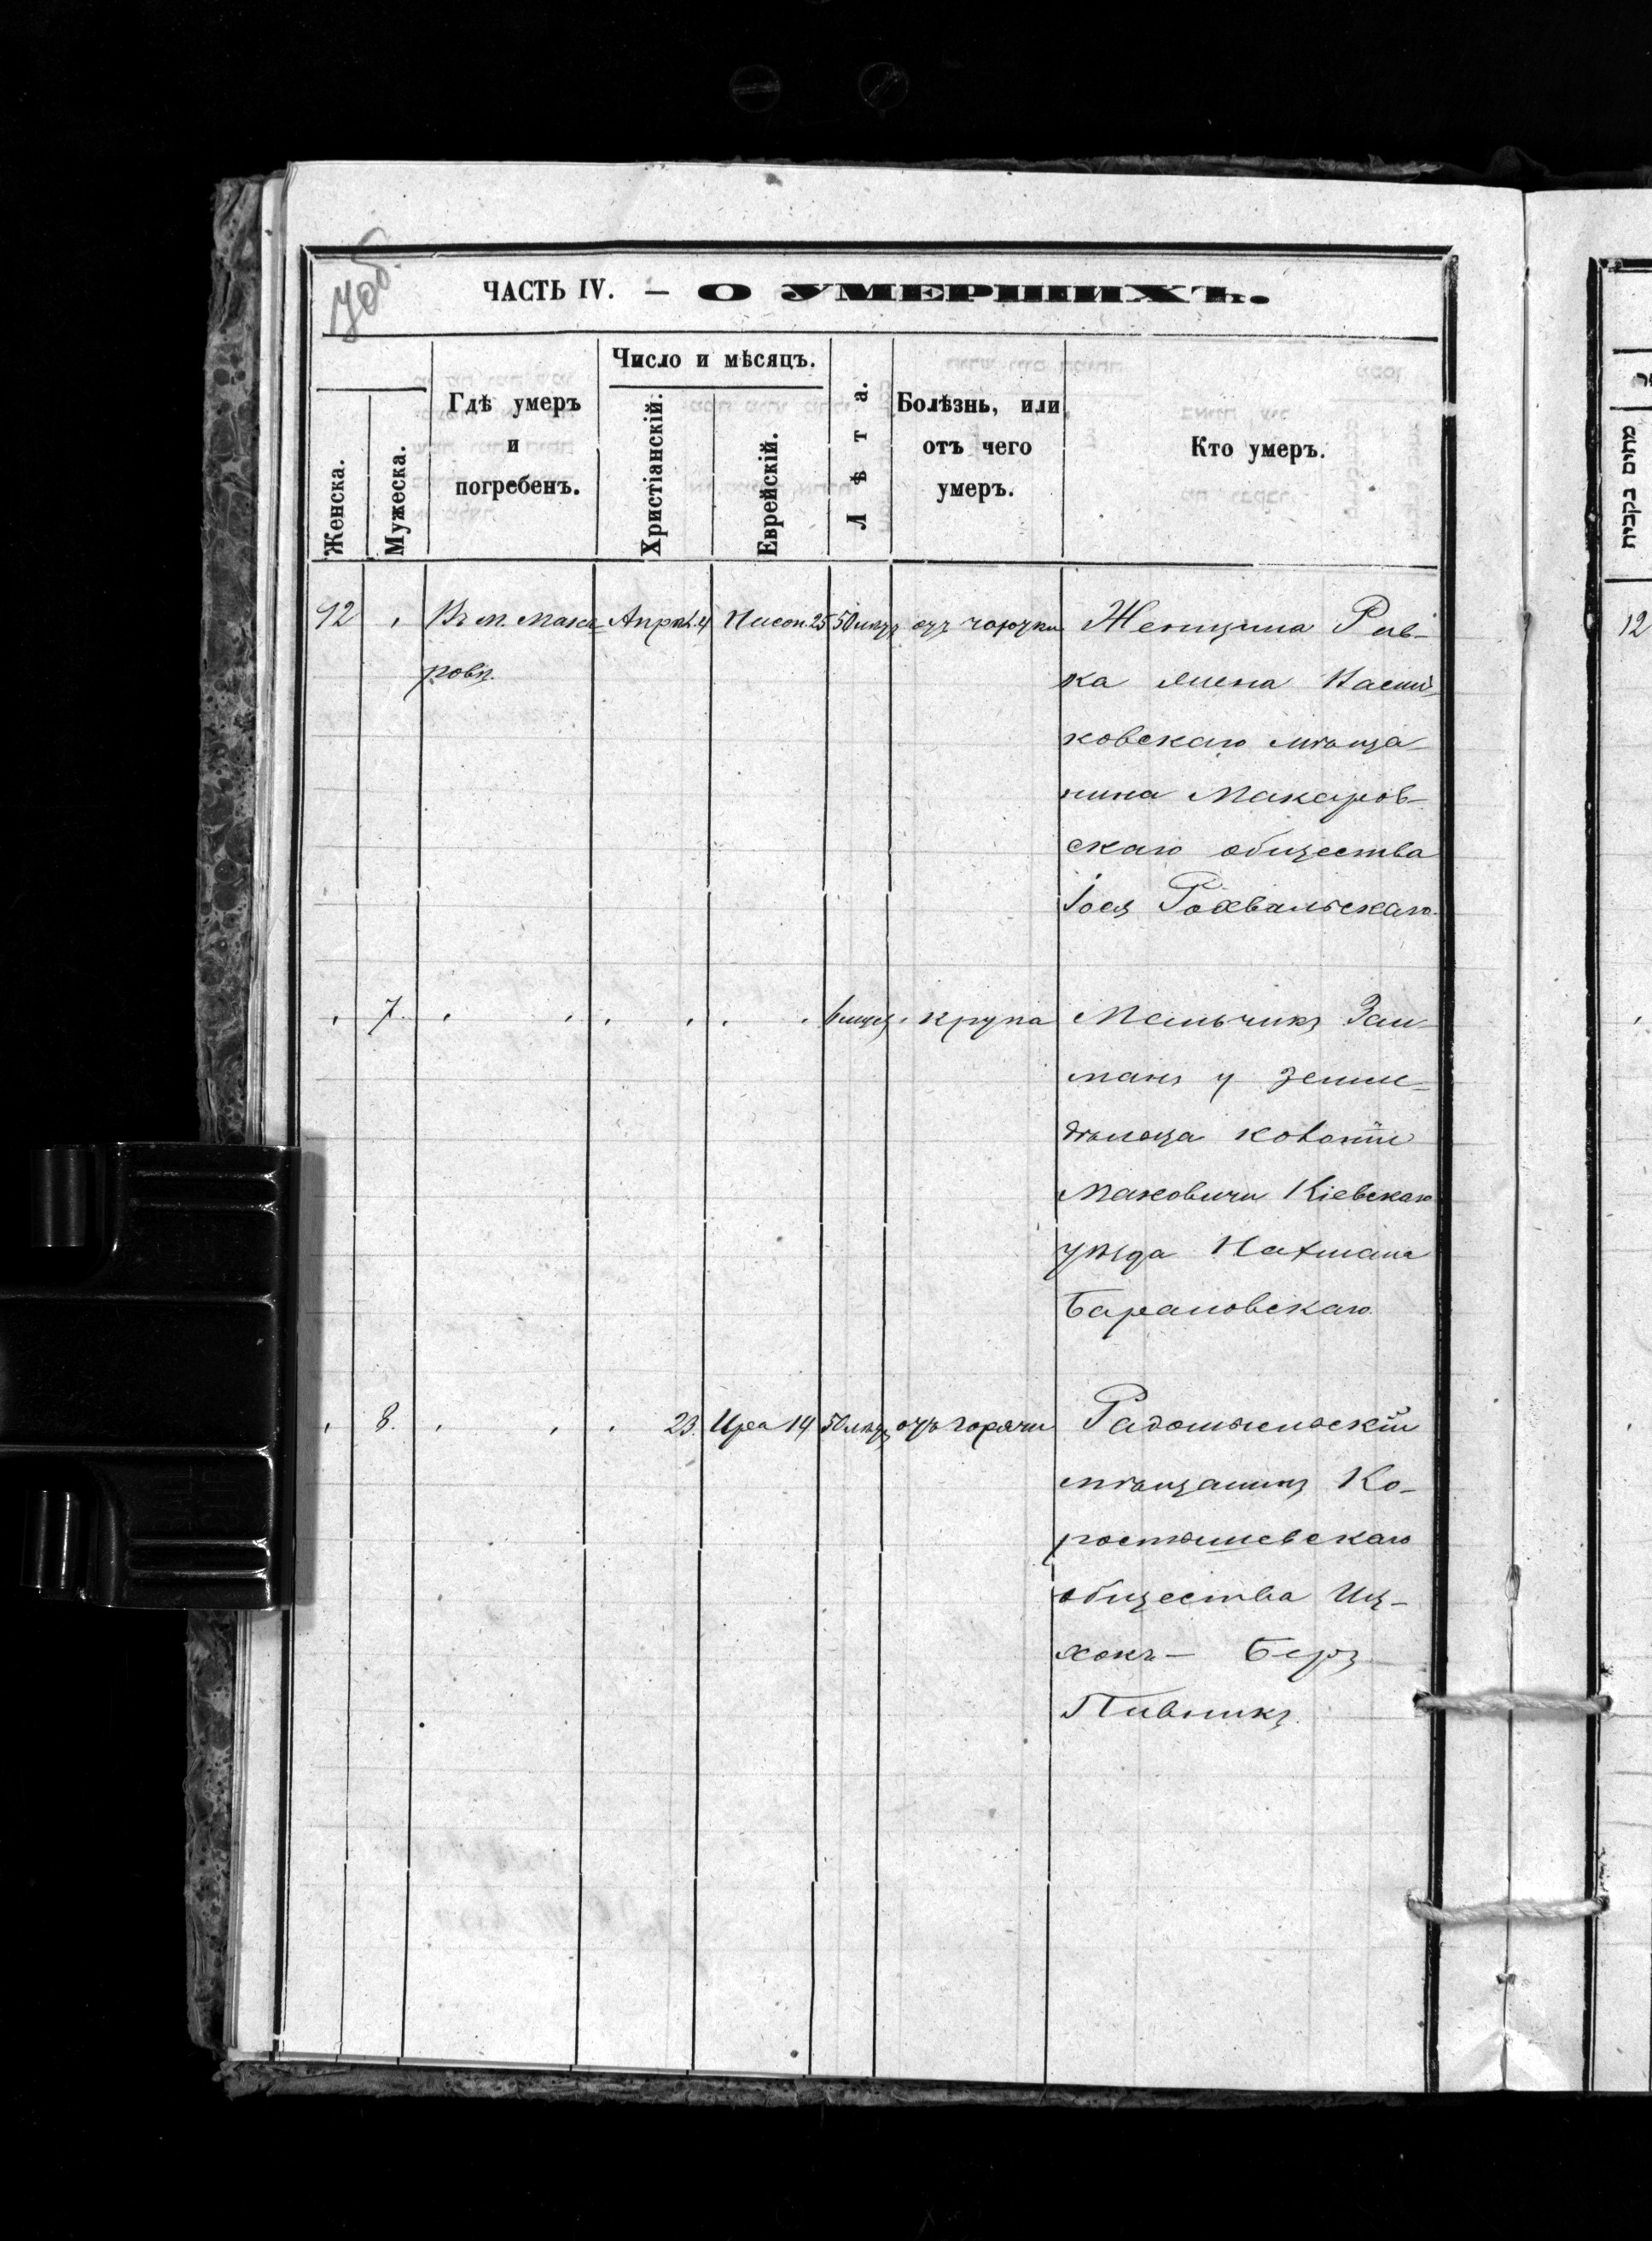 7об.
ЧАСТЬ IV. — О УМЕРШИХЪ.
Женска.
Мужеска.
Гдѣ умеръ
и
погребенъ.
Число и мѣсяцъ.
Христіанскій.
Еврейскій.
Лѣта.
Болѣзнь, или
отъ чего
умеръ.
Кто умеръ.
12 Въ м. Мака- Апрѣл. 4 Нисон. 25 50 лѣтъ отъ Женщина Рив-
ровѣ. ка жена
ковскаго мѣща-
нина Макаров-
скаго общества
Іося Рохвальскаго.
7. крупа Мальчикъ Зал-
манъ у земле-
дѣльца колоніи
Маковичи Кіевскаго
уѣзда Нахмана
Барановскаго.
8. 23. Иреа 14 50 лѣтъ отъ горячи Радомысльскій
мѣщанинъ Ко-
ростышевскаго
общества Иц-
хокъ- Беръ
Пивникъ.
מתים נקבות
12